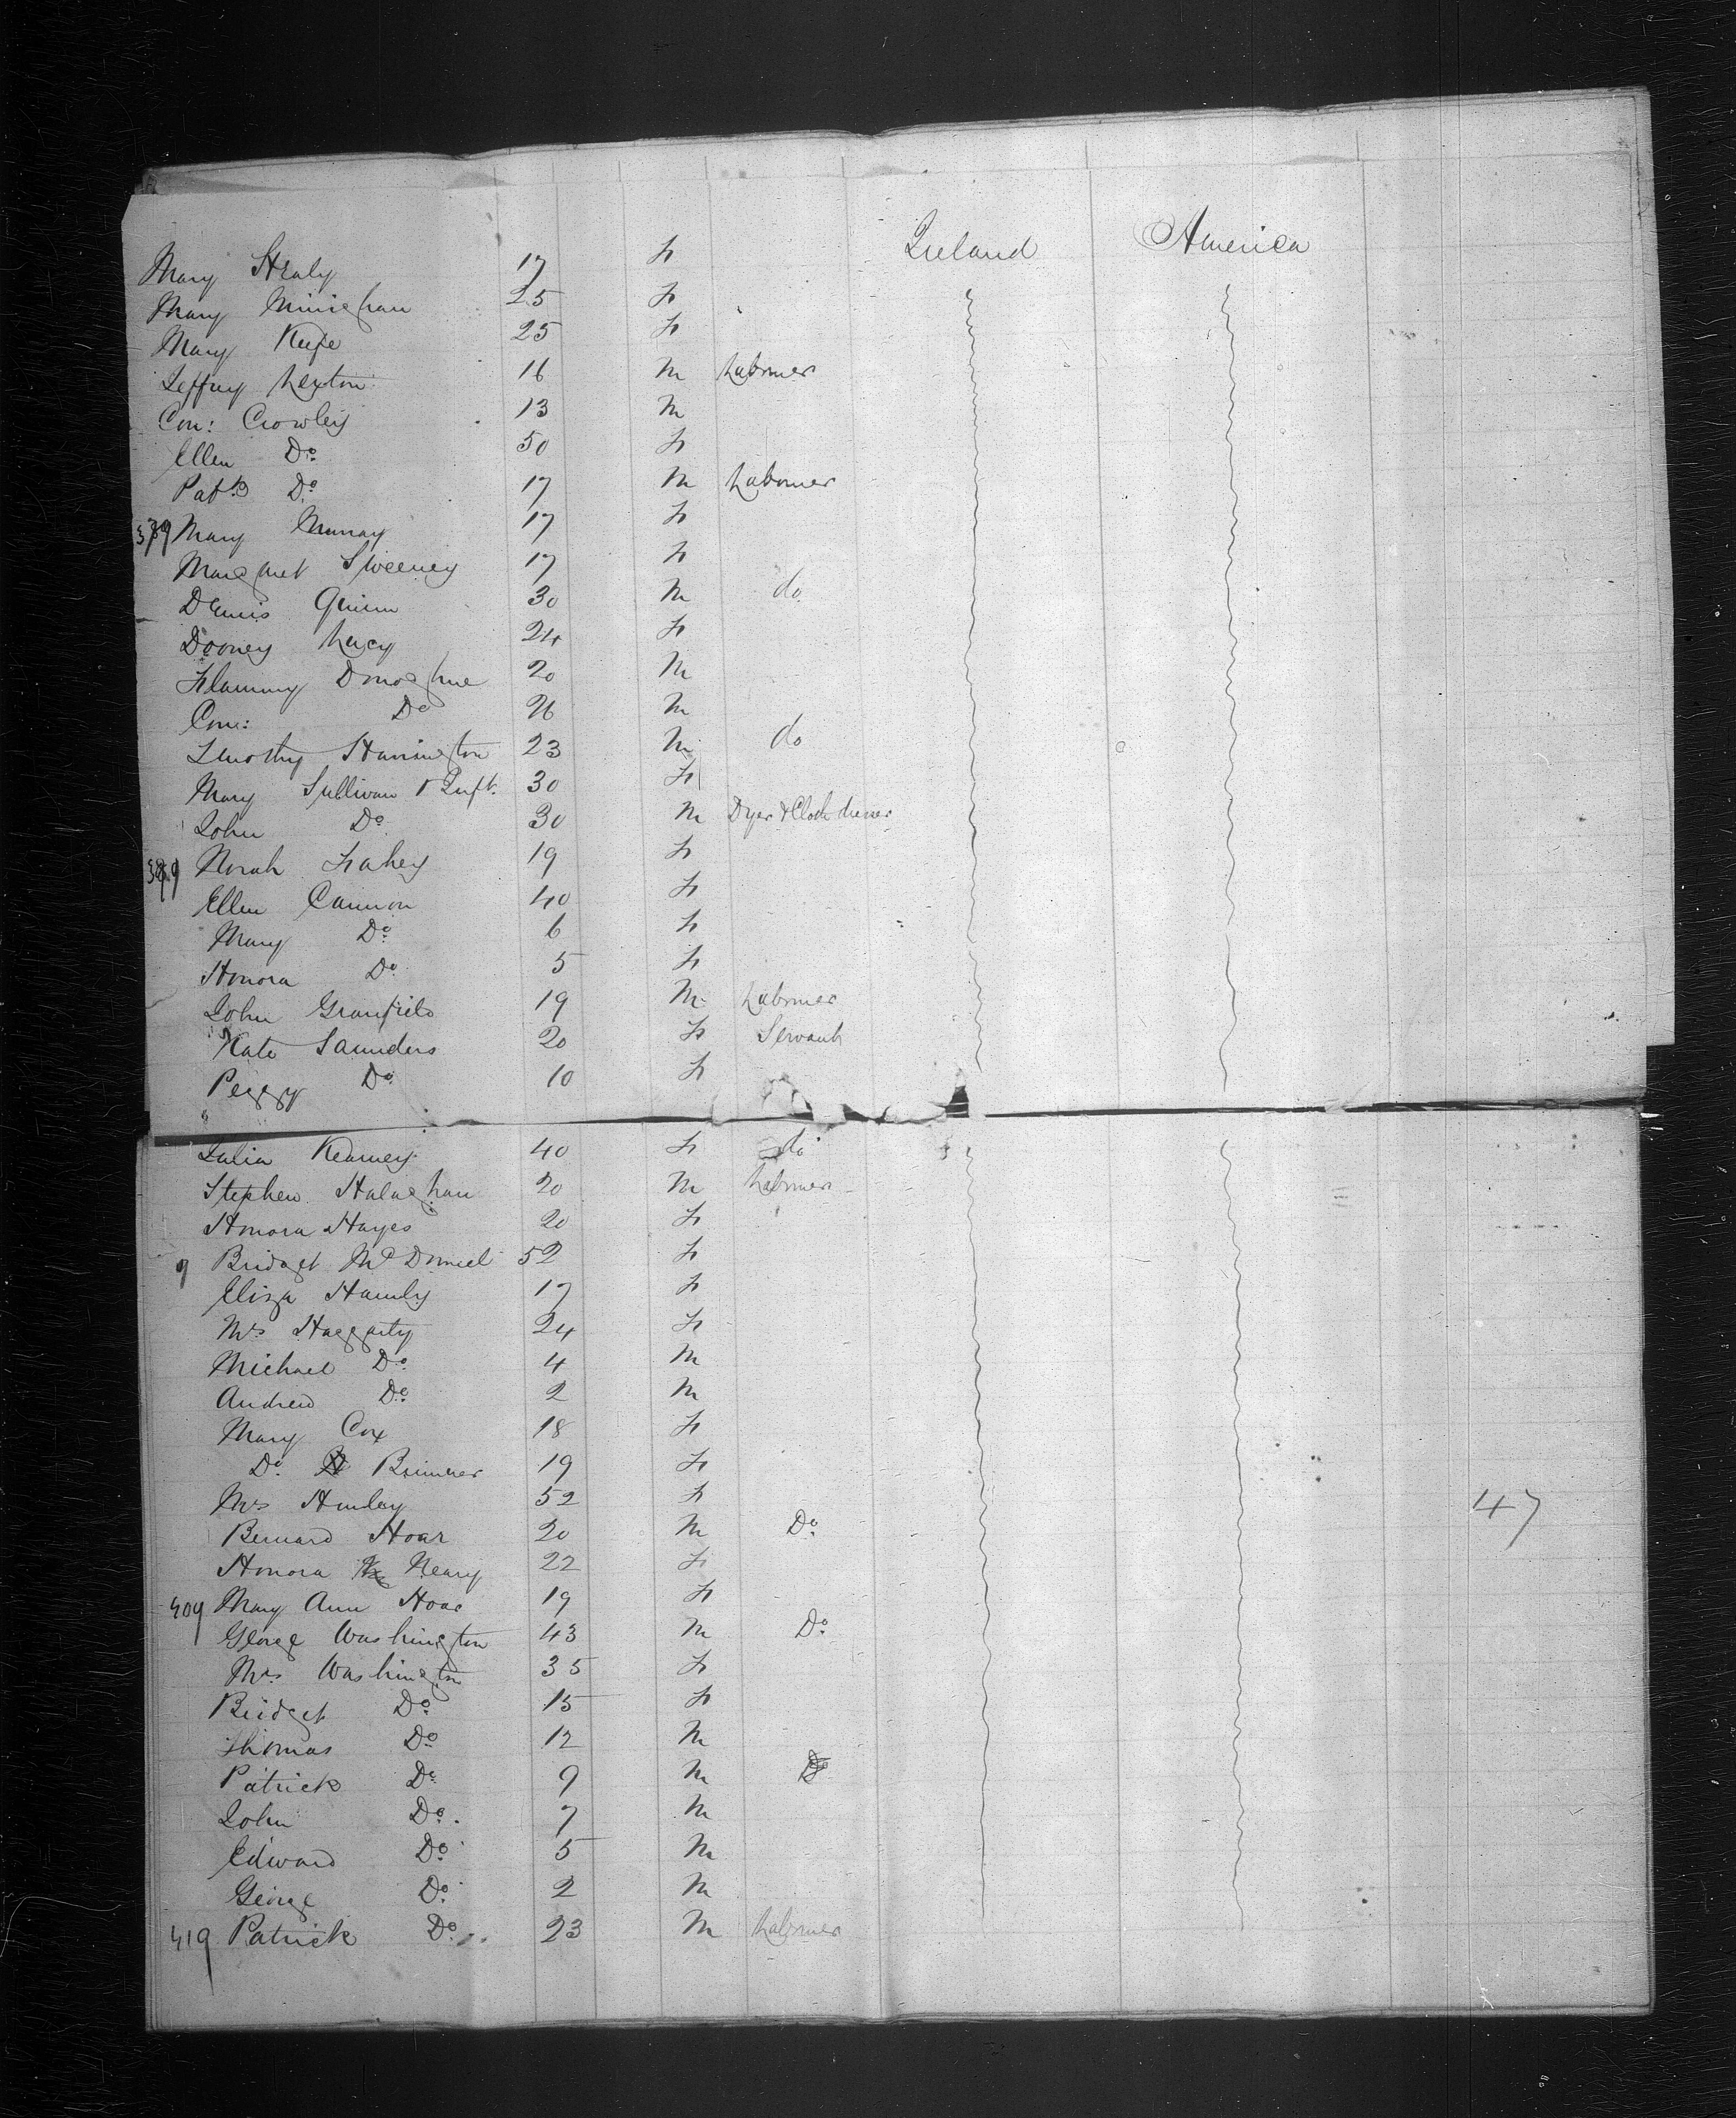 Mary Healy 17 F Ireland America
Mary Minighan 25 F
Mary Keefe 25 F
Jeffrey Lexton 16 M Labourer
Con: Crowley 13 M
Ellen Do 50 F
Patk Do 17 M Labourer
379 Mary Murray 17 F
Margaret Sweeney 17 F
Dennis Quinn 30 M do
Dooney Lucy 24 F
Flammy Donoghue 20 M
Con: Do 26 M
Timothy Harrington 23 M do
Mary Sullivan & Inft. 30 F
John Do 30 M Dyer & Cloth dresser
389 Norah Fahey 19 F
Ellen Cannon 40 F
Mary Do 6 F
Honora Do 5 F
John Granfield 19 M Labourer
Kate Saunders 20 F Servant
Peggy Do 10 F
Julia Kearney 40 F do
Stephen Halaghan 20 M Labourer
Honora Hayes 20 F
9 Bridget McDonnel 52 F
Eliza Hamly 17 F
Mrs Haggarty 24 F
Michael Do 4 M
Andrew Do 2 M
Mary Cox 18 F
Do Brimner 19 F
Mrs Hunley 52 F 47
Bernard Hoar 20 M Do
Honora Neary 22 F
409 Mary Ann Hoar 19 F
George Washington 43 M Do
Mrs Washington 35 F
Bridget Do 15 F
Thomas Do 12 M
Patrick Do 9 M Do
John Do 7 M
Edward Do 5 M
George Do 2 M
419 Patrick Do 23 M Labourer